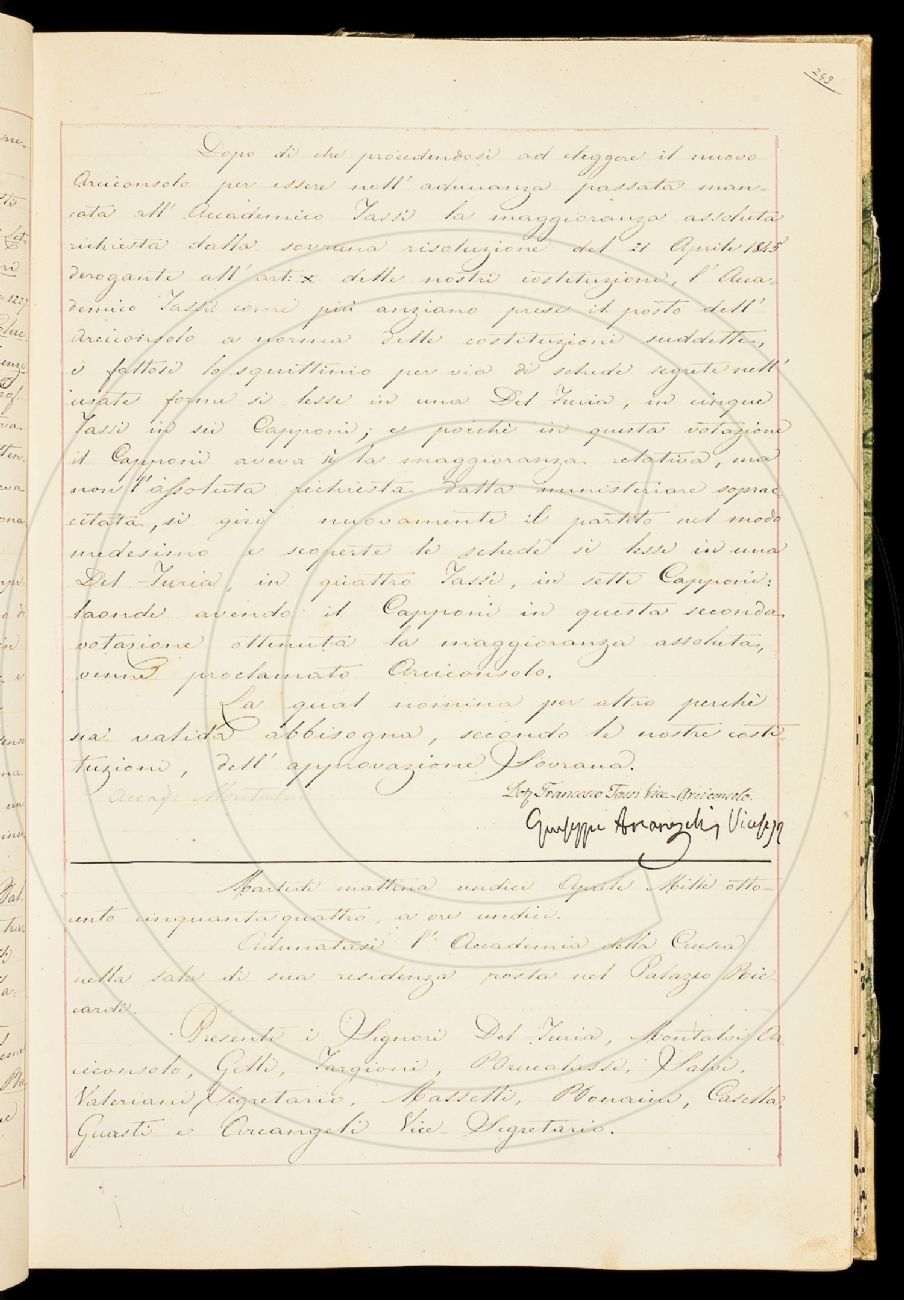 249
Dopo di che procedendosi ad eleggere il nuovo
Arciconsolo per essere nell' adunanza passata man-
cata all' Accademico Tassi la maggioranza assoluta
richiesta dalla sovrana risoluzione del 21 Aprile 1845
derogante all' art: X delle nostre costituzione, l' Acca-
demico Tassi come più anziano prese il posto dell'
Arciconsolo a norma delle costituzioni suddette,
e fattosi lo squittinio per via di schede segrete nell'
usate forme si lesse in una Del Furia, in cinque
Tassi in sei Capponi; e poichè in questa votazione
il Capponi aveva sì la maggioranza relativa, ma
non l'assoluta richiesta dalla ministeriale soprac
citata, si girò nuovamente il partito nel modo
medesimo e scoperte le schede si lesse in una
Del Furia, in quattro Tassi, in sette Capponi:
laonde avendo il Capponi in questa seconda
votazione ottenuta la maggioranza assoluta,
venne proclamato Arciconsolo.
La qual nomina per altro perchè
sia valida abbisogna, secondo le nostre costi
tuzioni, dell' approvazione Sovrana.
Francesco Tassi Vice-Arciconsolo.
Giuseppe Arcangeli Viceseg
Martedì mattina undici Aprile Mille otto-
cento cinquanta quattro, a ore undici.
Adunatasi l' Accademia della Crusca
nella sala di sua residenza posta nel Palazzo Ric-
cardi.
Presenti i Signori Del Furia, Montalvi Ar
ciconsolo, Gelli, Targioni, Brucalassi, Salvi,
Valeriani Segretario, Masselli, Bonaini, Casella,
Guasti e Arcangeli Vice Segretario.